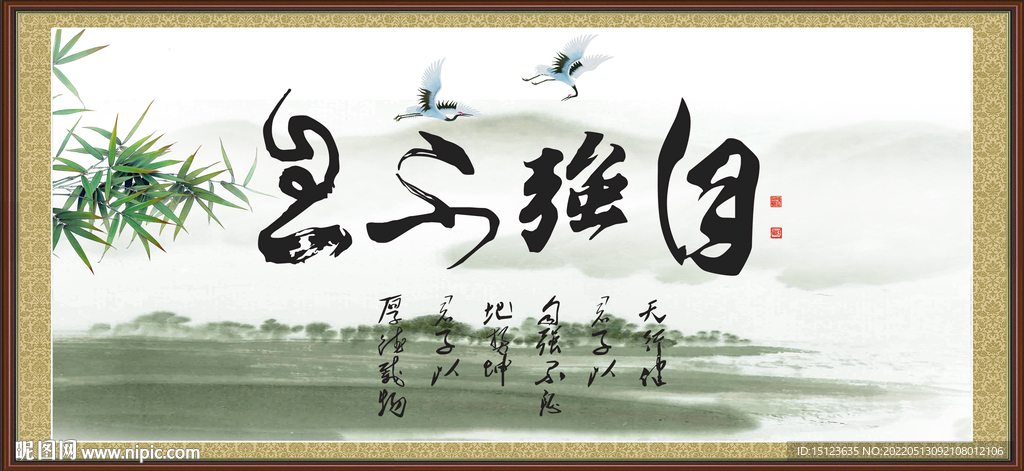 自強不息
天行健
君子以
自强不息
地势坤
君子以
厚德载物
昵图网 www.nipic.com
ID:15123635 NO:20220513092108012106